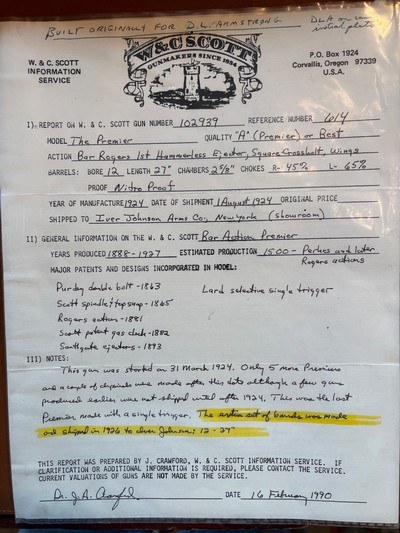 BUILT ORIGINALLY FOR D.L. ARMSTRONG
DLA on
initial plate
W. & C. SCOTT
INFORMATION
SERVICE
W & C SCOTT
GUNMAKERS SINCE 1834
P.O. Box 1924
Corvallis, Oregon 97339
U.S.A.
I) REPORT ON W. & C. SCOTT GUN NUMBER 102939 REFERENCE NUMBER 614
MODEL The Premier QUALITY "A" (Premier) or Best
ACTION Bar Rogers 1st Hammerless Ejector, Square Crossbolt, Wings
BARRELS: BORE 12 LENGTH 27" CHAMBERS 2 5/8" CHOKES R- 45% L- 65%
PROOF Nitro Proof
YEAR OF MANUFACTURE 1924 DATE OF SHIPMENT 1 August 1924 ORIGINAL PRICE
SHIPPED TO Iver Johnson Arms Co, New York (showroom)
II) GENERAL INFORMATION ON THE W. & C. SCOTT Bar Action Premier
YEARS PRODUCED 1888-1927 ESTIMATED PRODUCTION 1500 - Perkes and later
Rogers actions
MAJOR PATENTS AND DESIGNS INCORPORATED IN MODEL:
Purdey double bolt - 1863 Lard selective single trigger
Scott spindle/top snap - 1865
Rogers action - 1881
Scott patent gas check - 1882
Southgate ejectors - 1893
III) NOTES:
This gun was started on 31 March 1924. Only 5 more Premiers
and a couple of were made after this date although a few guns
produced earlier were not shipped until after 1924. This was the last
Premier made with a single trigger. The extra set of barrels was made
and shipped in 1926 to Iver Johnson: 12 - 27"
THIS REPORT WAS PREPARED BY J. CRAWFORD, W. & C. SCOTT INFORMATION SERVICE. IF
CLARIFICATION OR ADDITIONAL INFORMATION IS REQUIRED, PLEASE CONTACT THE SERVICE.
CURRENT VALUATIONS OF GUNS ARE NOT MADE BY THE SERVICE.
Dr. J.A. Crawford DATE 16 February 1990